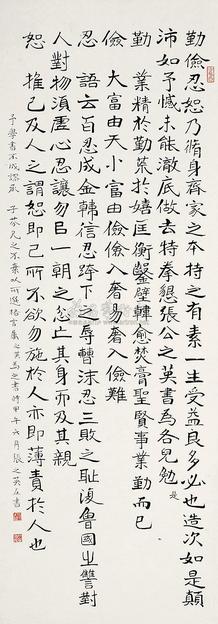 勤儉忍恕乃脩身齊家之本持之有素一生受益良多必也造次如是顛
沛如予憾未能澈底做去特奉懇張公之英書為各兒勉
是
勤 業精於勤荒於嬉匡衡鑿壁轉愈焚膏聖賢事業勤而已
儉 大富由天小富由儉儉入奢易奢入儉難
忍 語云百忍成金韓信忍跨下之辱轉沫忍三敗之恥復魯國之讐對
人對物湏虛心忍讓勿曰一朝之忿亡其身亦及其親
恕 推己及人之謂恕即己所不欲勿施於人亦即薄責於人也
予學書不成謬承 子芬
之英為之書時甲午六月張之英左書